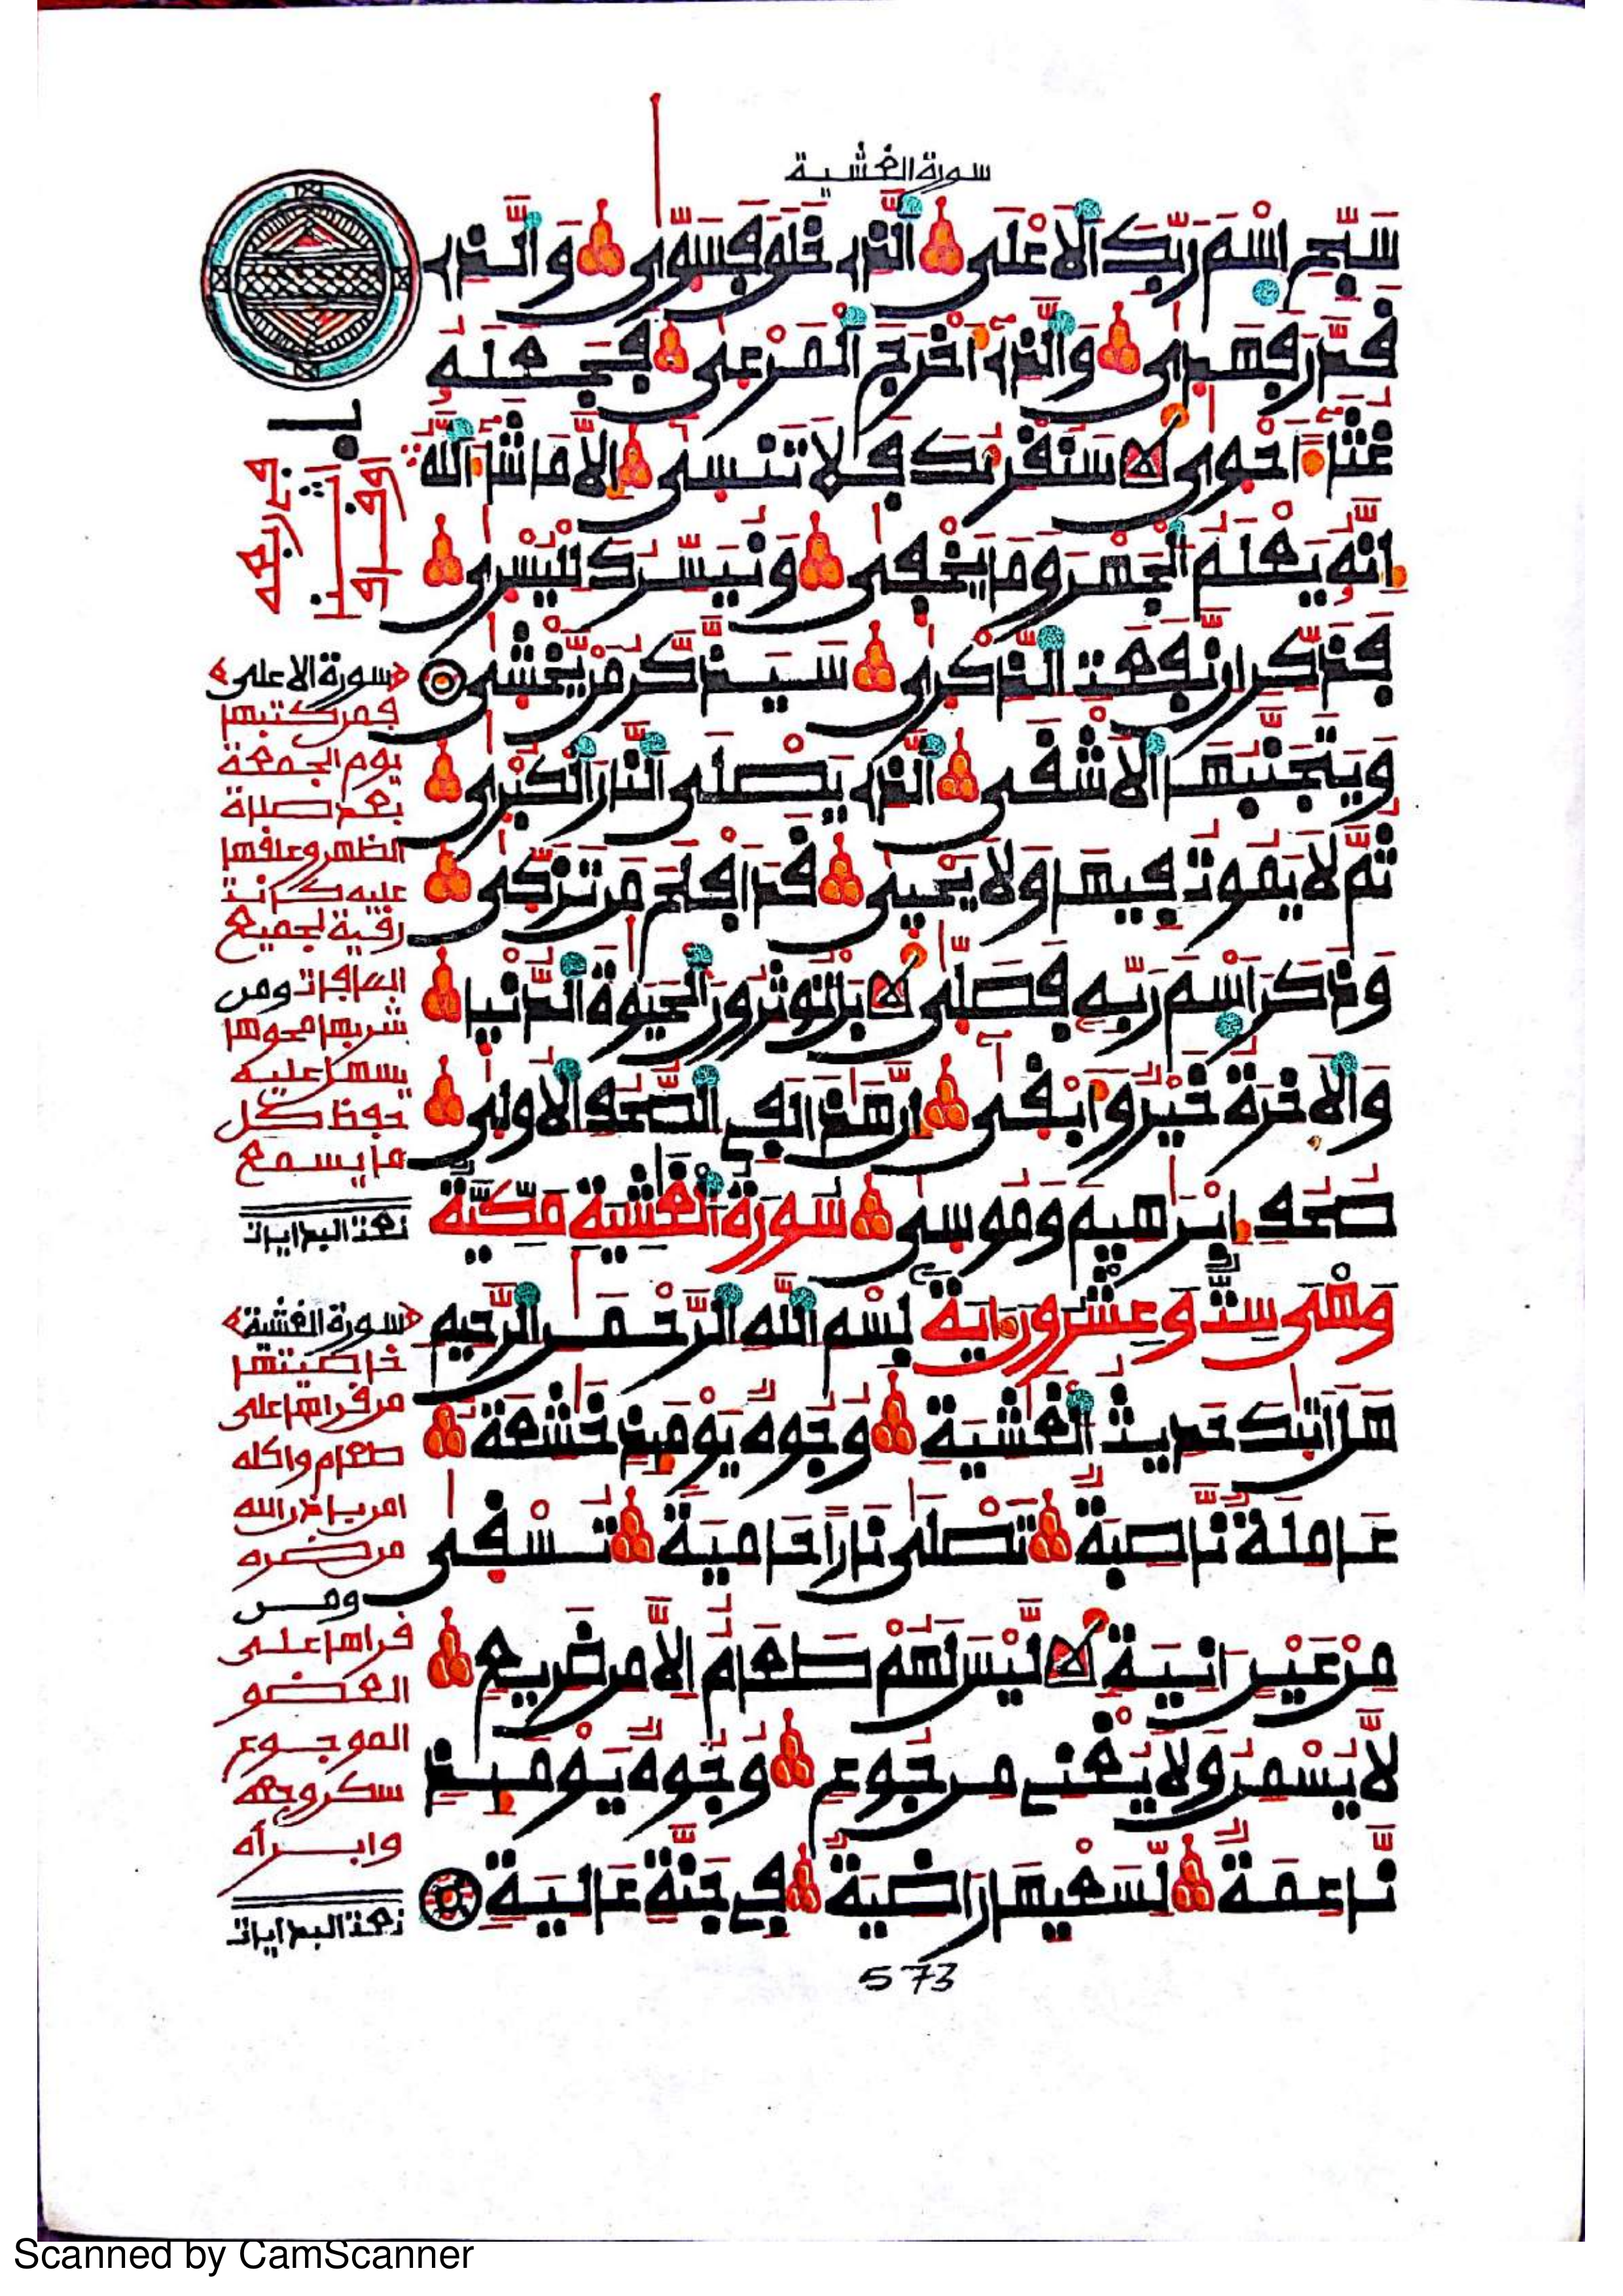 سورة الغشية
سَبِّحِ اِسْمَ رَبِّكَ اَ۬لَاعْلَى اَ۬لذِے خَلَقَ فَسَوّٜىٰ وَالذِے
قَدَّرَ فَهَدٜىٰ وَالذِےٓ أَخْرَجَ اَ۬لْمَرْعٜىٰ فَجَعَلَهُۥ
غُثَآءً اَحْوٜىٰ سَنُقْرِئُكَ فَلَا تَنسٜىٰٓ إِلَّا مَا شَآءَ اَ۬للَّهُ
إِنَّهُۥ يَعْلَمُ اُ۬لْجَهْرَ وَمَا يَخْفٜىٰ وَنُيَسِّرُكَ لِلْيُسْرٜىٰ
فَذَكِّرِ اِن نَّفَعَتِ اِ۬لذِّكْرٜىٰ سَيَذَّكَّرُ مَنْ يَّخْشٜىٰ
وَيَتَجَنَّبُهَا اَ۬لَاشْقَى اَ۬لذِے يَصْلَى اَ۬لنَّارَ اَ۬لْكُبْرٜىٰ
ثُمَّ لَا يَمُوتُ فِيهَا وَلَا يَحْيٜىٰ قَدَ اَفْلَحَ مَن تَزَكّٜىٰ
وَذَكَرَ اَ۪سْمَ رَبِّهِۦ فَصَلّٜىٰ بَلْ تُوثِرُونَ اَ۬لْحَيَوٰةَ اَ۬لدُّنْيٜا
وَالَاخِرَةُ خَيْرٌ وَأَبْقٜىٰٓ إِنَّ هَٰذَا لَفِے اِ۬لصُّحُفِ اِ۬لُاولٜىٰ
صُحُفِ إِبْرَٰهِيمَ وَمُوسٜىٰ سُورَةُ الْغَٰشِيَةِ مَكِّيَّةٌ
وَهْىَ سِتٌّ وَعِشْرُونَ ءَايَةً بِسْمِ اِ۬للَّهِ اِ۬لرَّحْمَٰنِ اِ۬لرَّحِيمِ
هَلَ اَتٜيٰكَ حَدِيثُ اُ۬لْغَٰشِيَةِ وُجُوهٌ يَوْمَئِذٍ خَٰشِعَةٌ
عَامِلَةٌ نَّاصِبَةٌ تَصْلٜىٰ نَاراً حَامِيَةً تُسْقٜىٰ
مِنْ عَيْنٍ اٰنِيَةٍ لَّيْسَ لَهُمْ طَعَامٌ اِلَّا مِن ضَرِيعٍ
لَّا يُسْمِنُ وَلَا يُغْنِے مِن جُوعٍ وُجُوهٌ يَوْمَئِذٍ
نَّاعِمَةٌ لِّسَعْيِهَا رَاضِيَةٌ فِے جَنَّةٍ عَالِيَةٍ
573
سورة الاعلى
فمن كتبها
يوم الجمعة
بعد صلاة
الظهر وعلقها
عليه كانت
رقية لجميع
العافات ومن
شربها محوها
يسهل عليه
حفظ كل
ما يسمع
سورة الغشية
خاصيتها
من قراها على
طعام واكله
امن باذن الله
من ضره
ومن
قراها على
العضو
الموجوع
سكن وجعه
وابرأه
Scanned by CamScanner